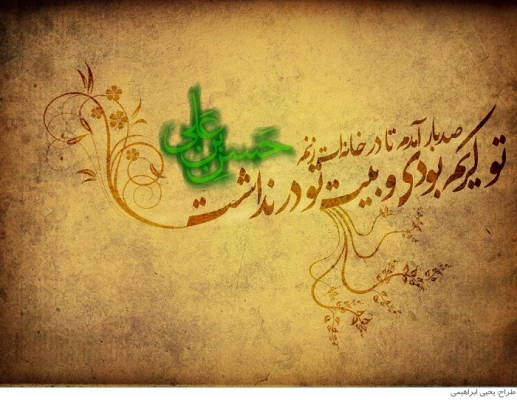 صد بار آمدم تا در خانه‌ات زنم
تو کریم بودی و بیت تو در نداشت
حسن بن علی
طراح: یحیی ابراهیمی